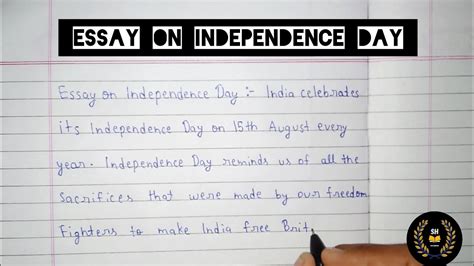 ESSAY ON INDEPENDENCE DAY
Essay on Independence Day :- India celebrates
its Independence Day on 15th August every
year. Independence Day reminds us of all the
sacrifices that were made by our freedom
Fighters to make India free Brit
SH